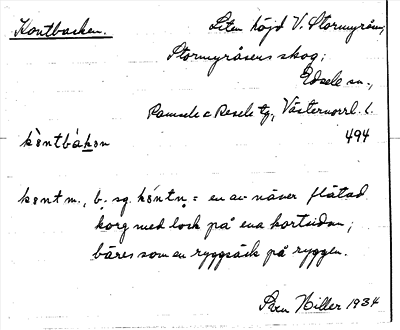 Kontbacken.
Liten höjd V. Stormyråsen,
Stormyråsens skog;
Edsele sn.,
Ramsele o Resele tg., Västernorrl. l.
494
kòntbàkən
kont m., b. sg. kóntn̥ = en av näver flätad
korg med lock på ena kortsidan;
bäres som en ryggsäck på ryggen.
Sven Hiller 1934